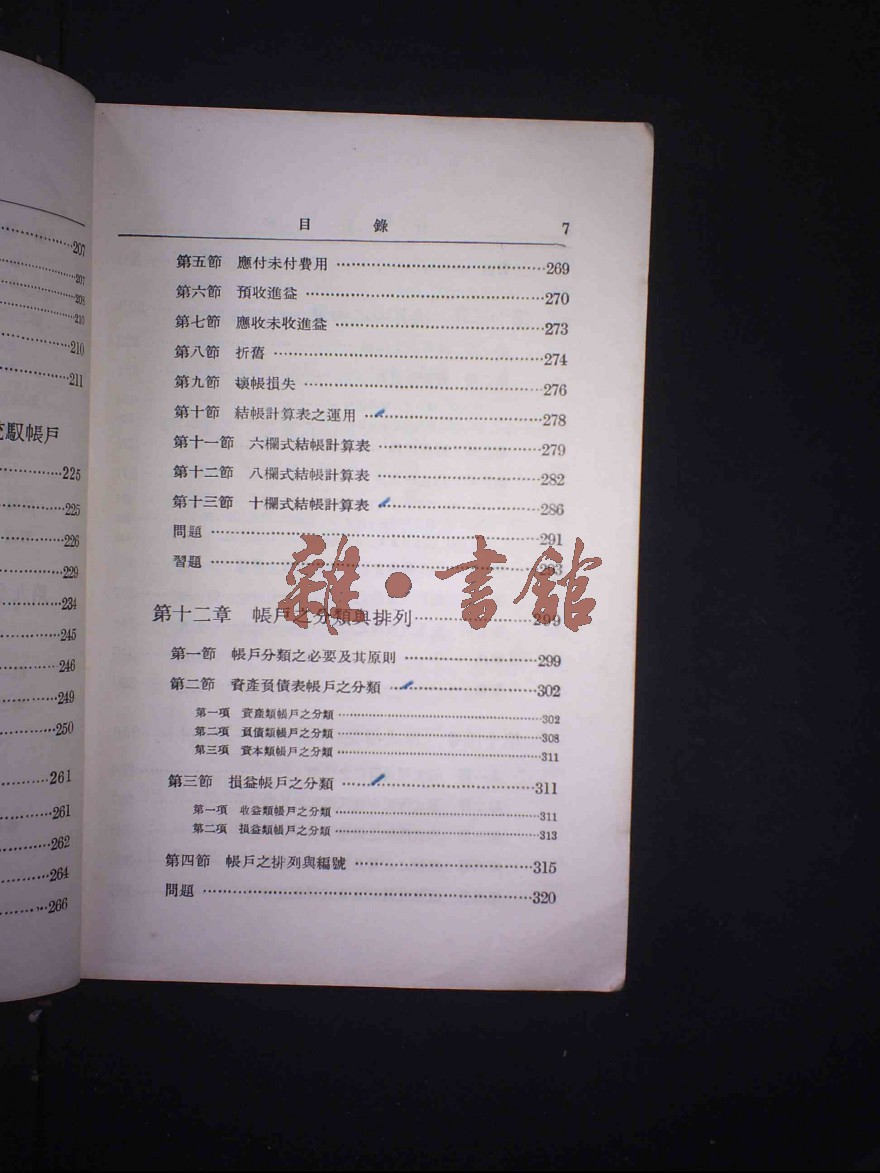 207
207
208
210
210
211
駁帳戶
225
225
226
229
234
245
246
249
250
261
261
262
264
266
目錄 7
第五節 應付未付費用 269
第六節 預收進益 270
第七節 應收未收進益 273
第八節 折舊 274
第九節 壞帳損失 276
第十節 結帳計算表之運用 278
第十一節 六欄式結帳計算表 279
第十二節 八欄式結帳計算表 282
第十三節 十欄式結帳計算表 286
問題 291
習題 293
雜·書館
第十二章 帳戶之分類與排列 299
第一節 帳戶分類之必要及其原則 299
第二節 資產負債表帳戶之分類 302
第一項 資產類帳戶之分類 302
第二項 負債類帳戶之分類 308
第三項 資本類帳戶之分類 311
第三節 損益帳戶之分類 311
第一項 收益類帳戶之分類 311
第二項 損益類帳戶之分類 313
第四節 帳戶之排列與編號 315
問題 320